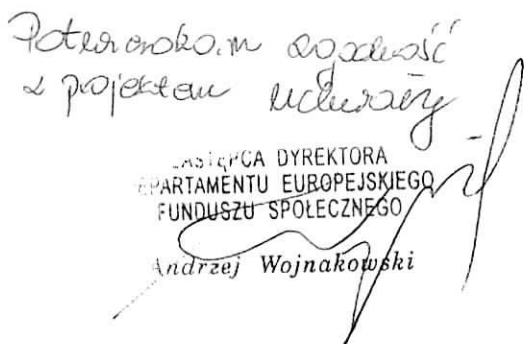 Potwierdzam zgodność
z projektem uchwały
ZASTĘPCA DYREKTORA
DEPARTAMENTU EUROPEJSKIEGO
FUNDUSZU SPOŁECZNEGO
Andrzej Wojnakowski